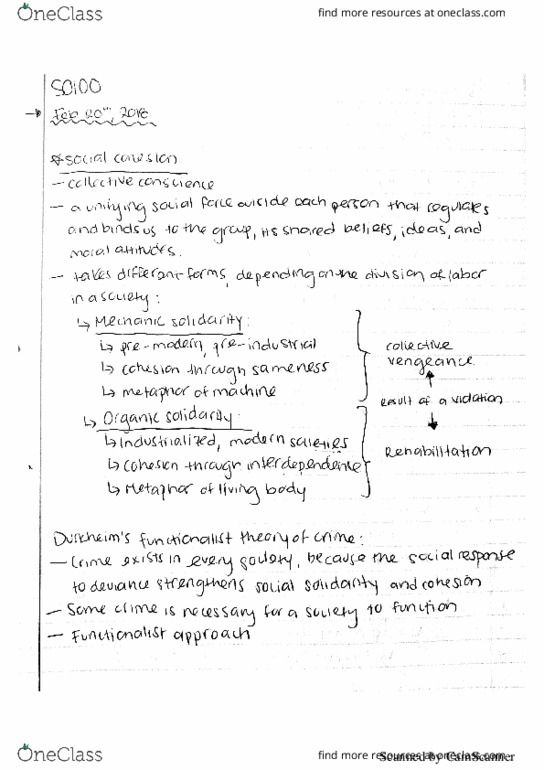 OneClass
find more resources at oneclass.com
SO100
→ Feb 20th, 2018
*social cohesion
- collective conscience
- a unifying social force outside each person that regulates
and binds us to the group, its shared beliefs, ideas, and
moral attitudes.
- takes different forms, depending on the division of labor
in a society:
↳ Mechanic solidarity:
↳ pre-modern, pre-industrial
↳ cohesion through sameness
↳ metaphor of machine
collective
vengeance
↑
result of a violation
↓
Rehabilitation
↳ Organic solidarity:
↳ Industrialized, modern societies
↳ cohesion through interdependence
↳ Metaphor of living body
Durkheim's functionalist theory of crime:
- Crime exists in every society, because the social response
to deviance strengthens social solidarity and cohesion
- Some crime is necessary for a society to function
- Functionalist approach
OneClass
find more resources at oneclass.com
Scanned by CamScanner